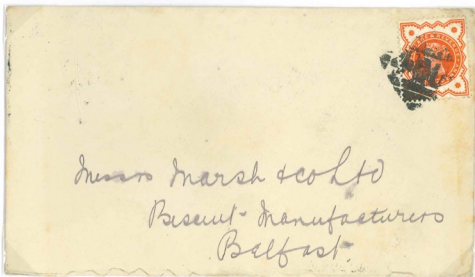 Messrs Marsh & Co Ltd
Biscuit Manufacturers
Belfast